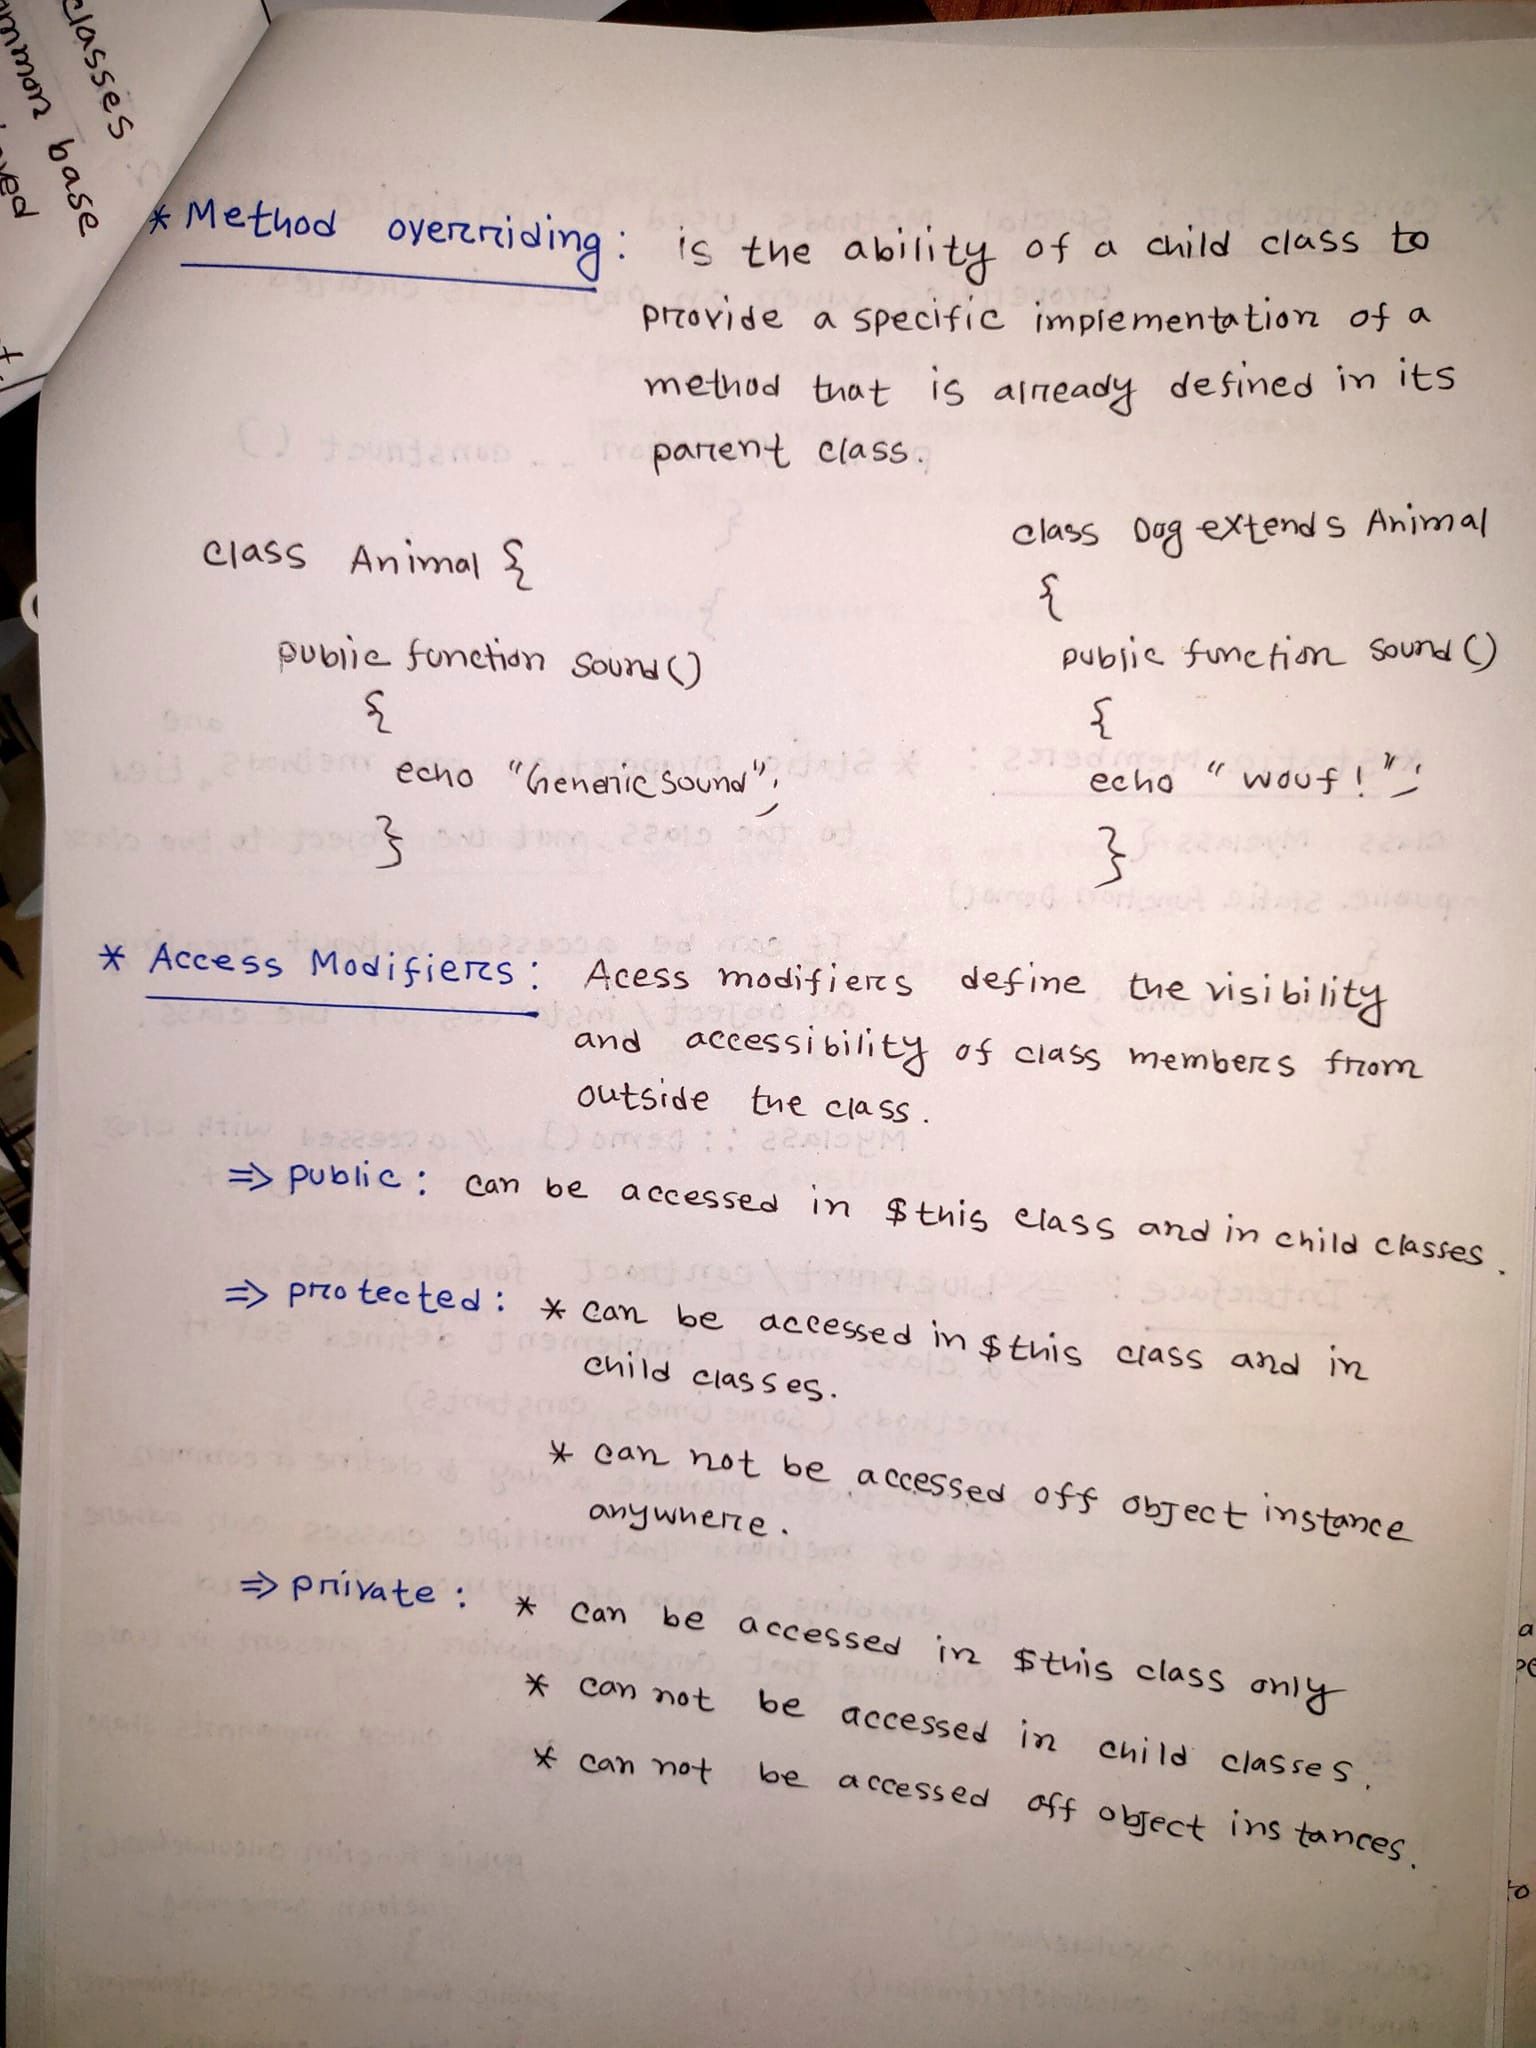 classes
ommon base
* Method overriding : is the ability of a child class to
provide a specific implementation of a
method that is already defined in its
parent class.
class Animal {
public function sound()
{
echo "Generic sound";
}
class Dog extends Animal
{
public function sound()
{
echo "wouf!";
}
* Access Modifiers : Acess modifiers define the visibility
and accessibility of class members from
outside the class.
⇒ public : can be accessed in $this class and in child classes.
⇒ protected : * can be accessed in $this class and in
child classes.
* can not be accessed off object instance
anywhere.
⇒ private : * can be accessed in $this class only
* can not be accessed in child classes.
* can not be accessed off object instances.
to